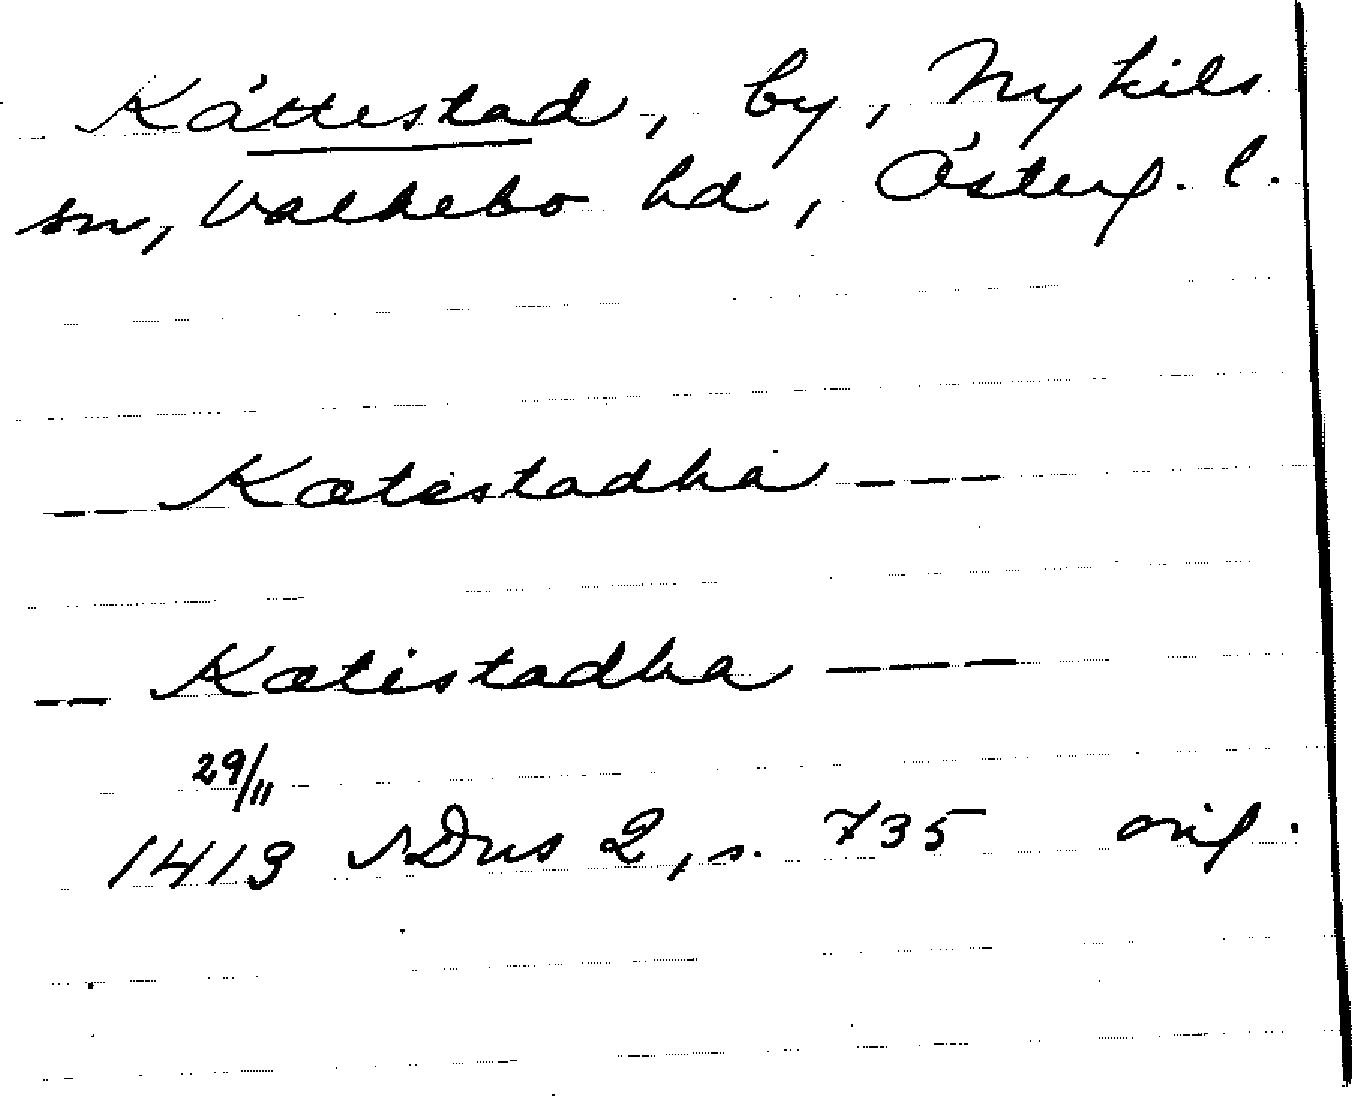 Kättestad, by, Nykils
sn, Valkebo hd, Österg. l.
-- Kætestadha ---
-- Kætistadha ---
29/11
1413 SDns 2, s. 735 orig.